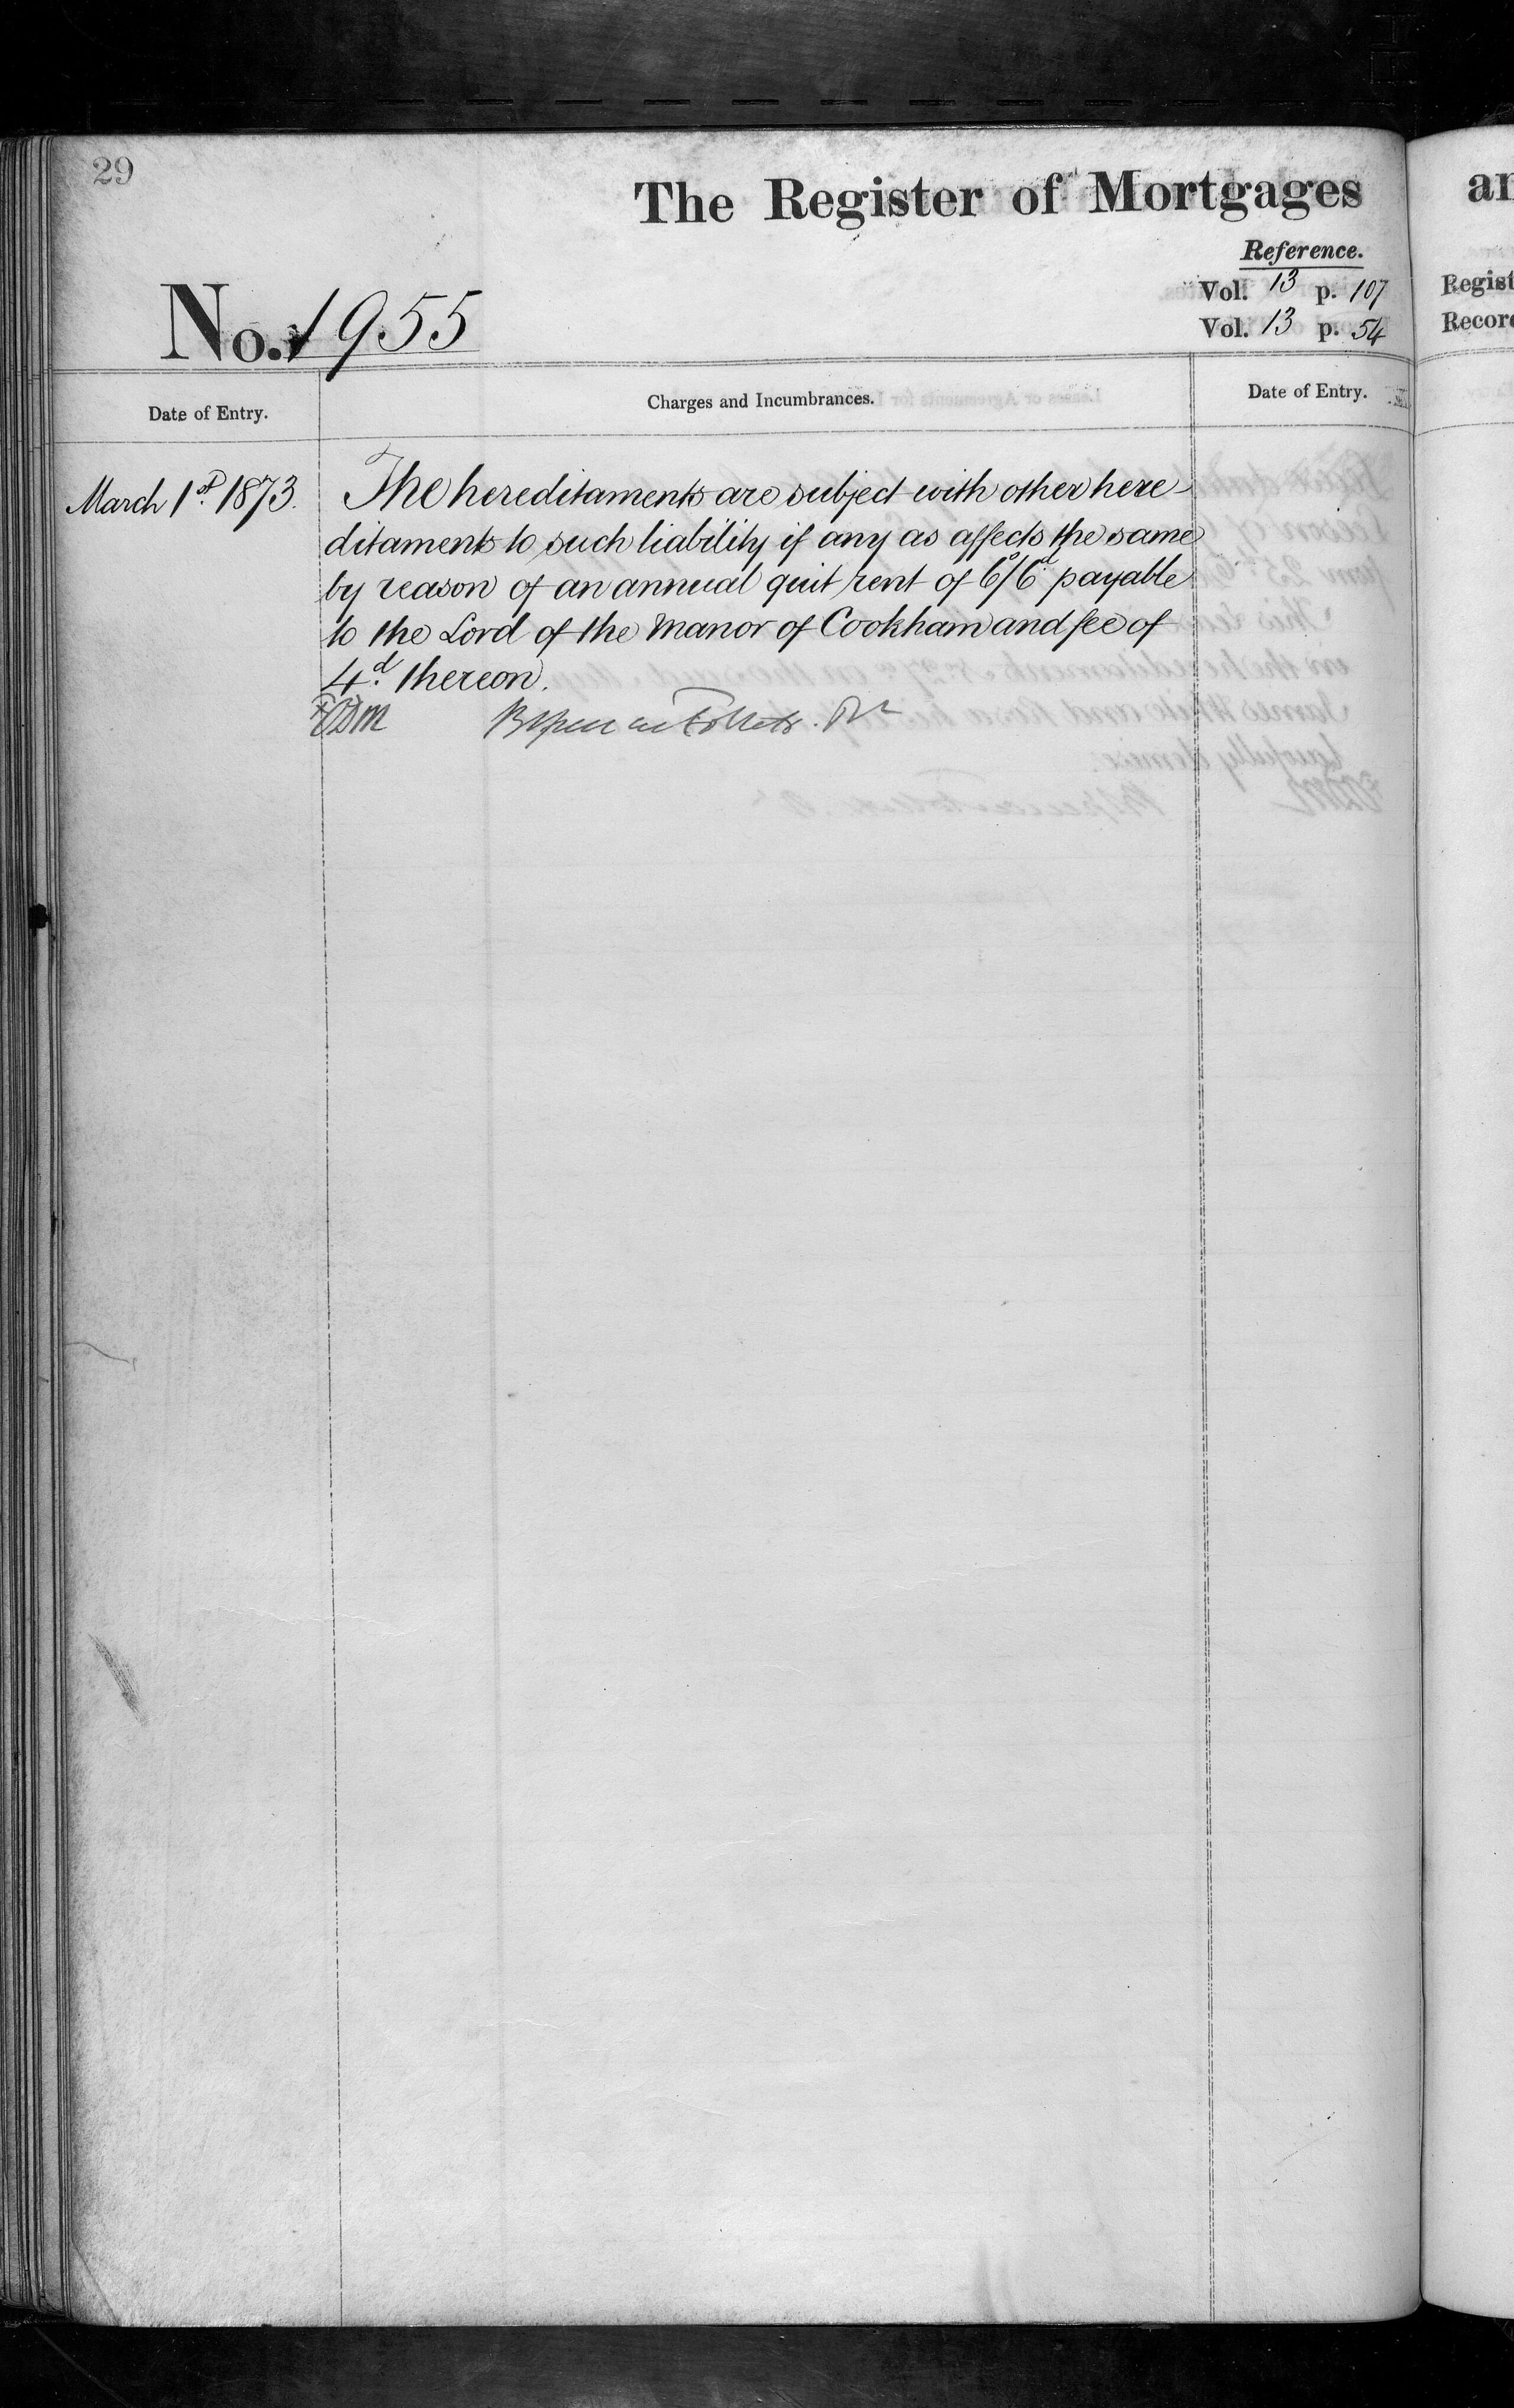 29
The Register of Mortgages
Reference.
Vol. 13 p. 107
No. 1955
Vol. 13 p. 54
Date of Entry.
Charges and Incumbrances.
Date of Entry.
March 1st. 1873.
The hereditaments are subject with other here-
ditaments to such liability if any as affects the same
by reason of an annual quit rent of 6s/6d payable
to the Lord of the Manor of Cookham and fee of
4d. thereon.
an
Regist
Record